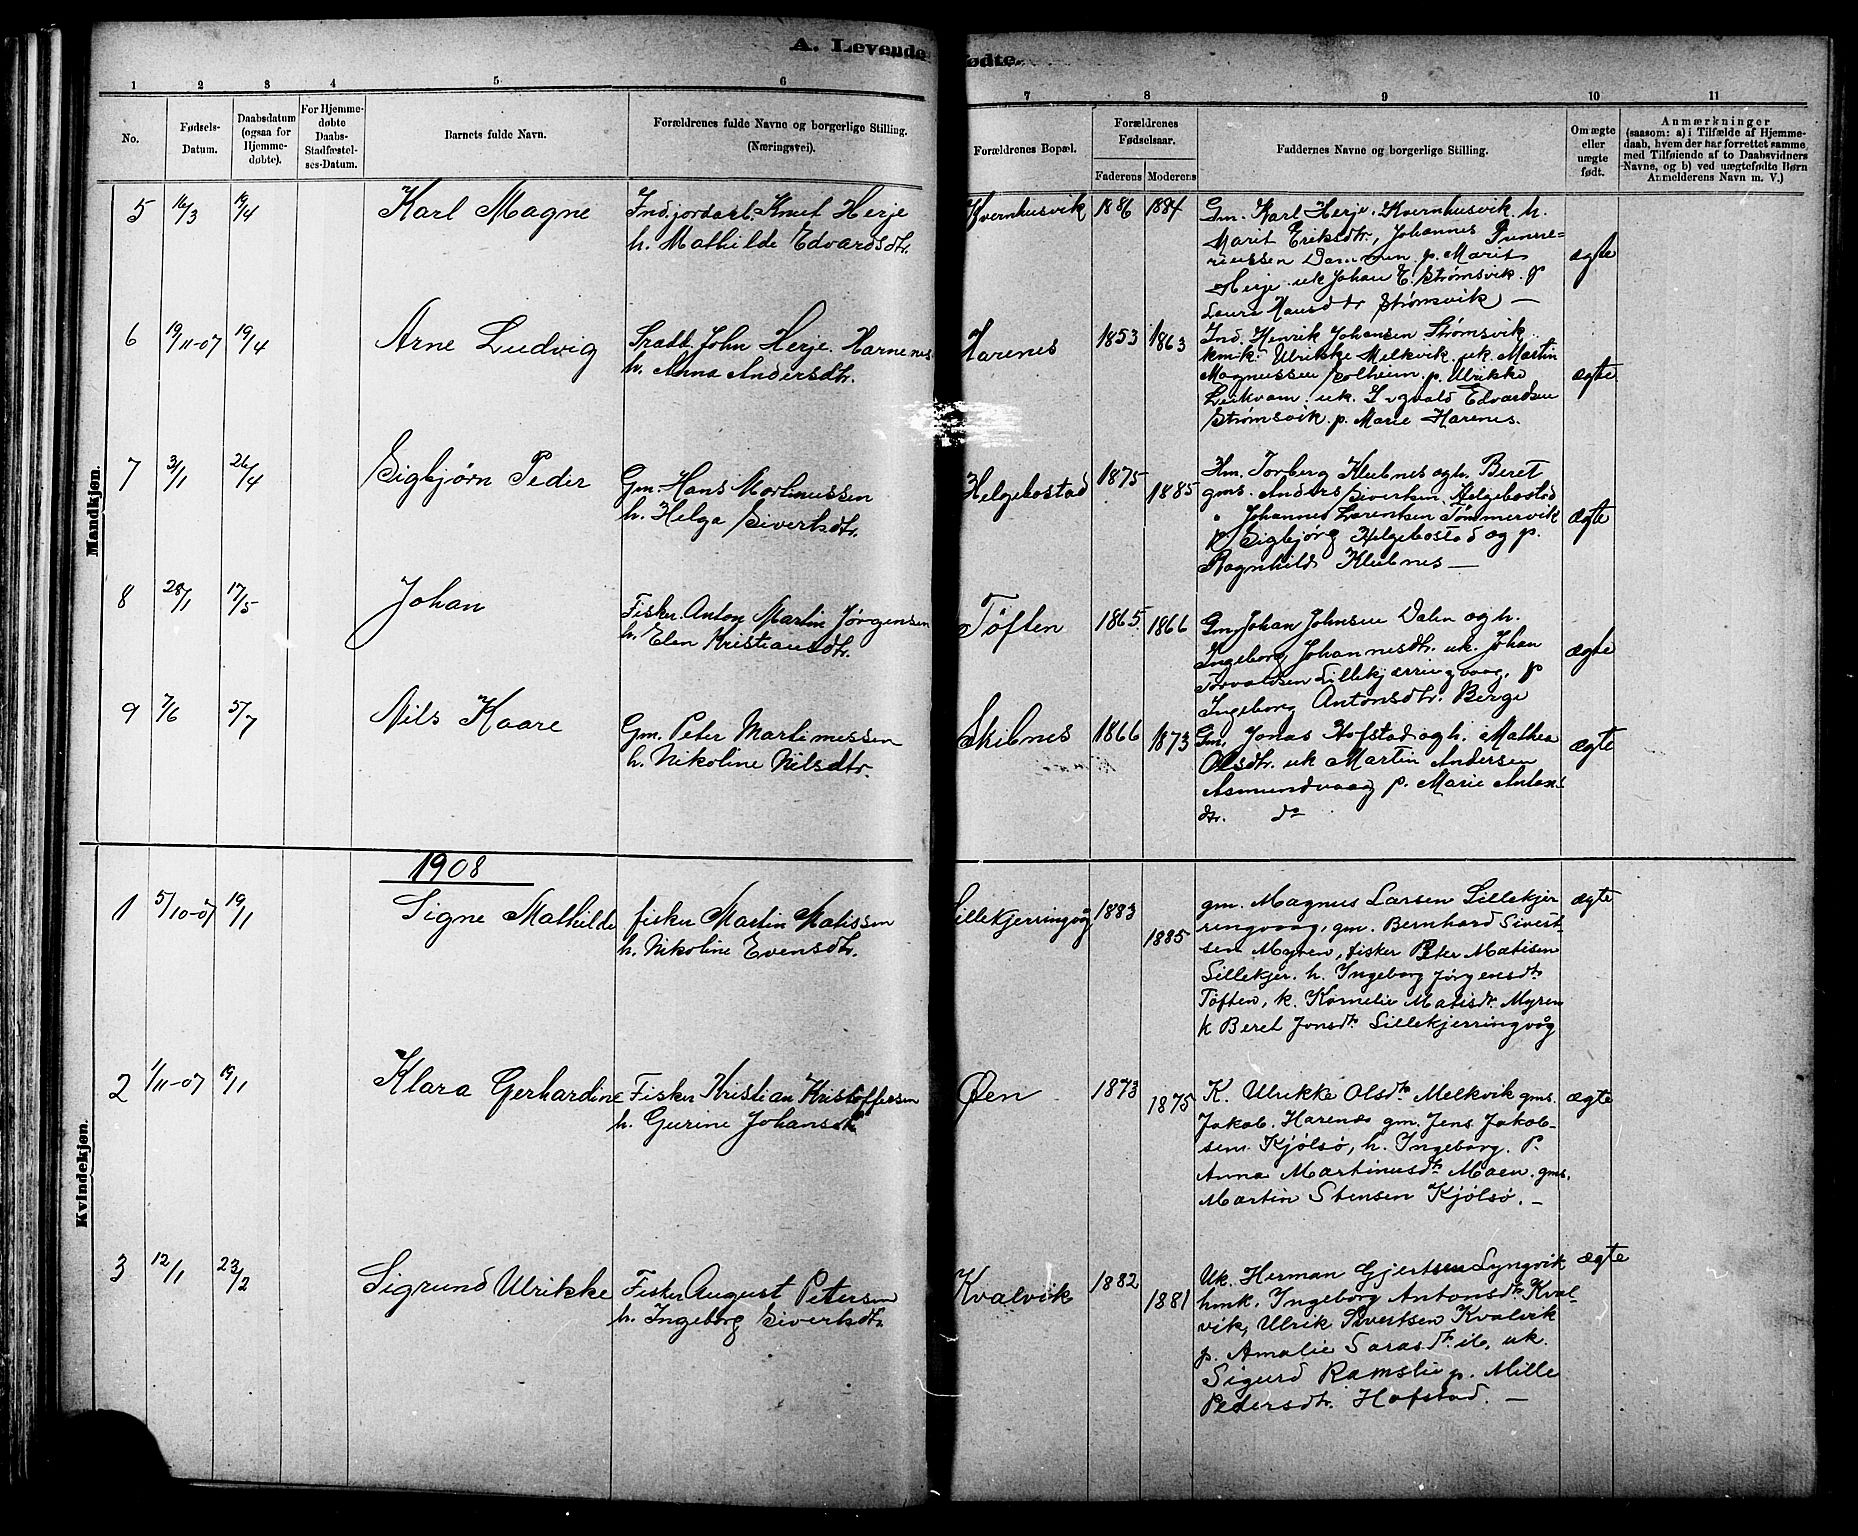 A. Levende
fødte.
1 2 3 4 5 6 7 8 9 10 11
No.
Fødsels-
Datum.
Daabsdatum
(ogsaa for
Hjemme-
døbte).
For Hjemme-
døbte
Daabs-
Stadfæstel-
ses-Datum.
Barnets fulde Navn.
Forældrenes fulde Navne og borgerlige Stilling.
(Næringsvei).
Forældrenes Bopæl.
Forældrenes
Fødselsaar.
Faderens
Moderens
Faddernes Navne og borgerlige Stilling.
Om ægte
eller
uægte
født.
Anmærkninger
(saasom: a) i Tilfælde af Hjemme-
daab, hvem der har forrettet samme
med Tilføiende af to Daabsvidners
Navne, og b) ved uægtefødte Børn
Anmelderens Navn m. V.)
Mandkjøn.
5 16/3 19/4 Karl Magne
Indjordarb. Knut Herje
h. Mathilde Edvardsdtr.
Kvernhusvik 1886 1884
Gm. Karl Herje. Kvernhusvik h.
Marit Eriksdtr, Johannes
p. Marit
Herje uk Johan E. Strømsvik. p
Strømsvik —
ægte
6 19/11-07 19/4 Arne Ludvig
John Herje. Harnenes
h. Anna Andersdtr.
Harenes 1853 1863
Ind. Henrik Johansen Strømsvik.
kmk. Ulrikke Melkvik. uk. Martin
Magnussen Solheim. p. Ulrikke
Leikvam. uk. Sigvald Edvardsen
Strømsvik. p. Marie Harenes.
ægte
7 31/1 26/4 Sigbjørn Peder
Gm. Hans Martinussen
h. Helga Sivertsdtr.
Helgebostad 1875 1885
Hm. Torberg Klubnes og h. Beret
gms. Anders Sivertsen. Helgebostad
" Johannes Larentsen Tømmervik
p Sigbjørg Helgebostad og p.
Ragnhild Klubnes —
ægte
8 28/1 17/5 Johan
Fisker. Anton Martin Jørgensen
h. Elen Kristiansdtr.
Tøften 1865 1866
Gm. Johan Johnsen Dalen og h.
Ingeborg Johannesdtr. uk. Johan
Torvaldsen Lillekjærringvaag. p
Ingeborg Antonsdtr. Berge
ægte
9 7/6 5/7 Nils Kaare
Gm. Peter Martinussen
h. Nikoline Nilsdtr.
Skibnes 1866 1873
Gm. Jonas Hofstad og h. Mathea
Olsdtr. uk Martin Andersen
Asmundvaag p. Marie Antons-
dtr. do
ægte
1908
Kvindekjøn.
1 5/10-07 19/1 Signe Mathilde
fisker Martin Matissen
h. Nikoline Evensdtr.
Lillekjerringvåg 1883 1885
gm. Magnus Larsen Lillekjer
ringvaag, gm. Bernhard Sivert-
sen Myren, fisker Peter Matisen
Lillekjer. h. Ingeborg Jørgensdtr
Tøften, k. Kornelie Matisdtr. Myren
k Beret Jonsdtr Lillekjerringvåg
ægte
2 1/11-07 19/1 Klara Gerhardine
Fisker Kristian Kristoffersen
h. Gurine Johansdtr
Øen 1873 1875
K. Ulrikke Olsdtr Melkvik gms.
Jakob. Harenes gm. Jens Jakob-
sen. Kjølsø, h. Ingeborg. P.
Anna Martinusdtr Maen. gms.
Martin Stensen Kjølsø. —
ægte
3 12/1 23/2 Sigrund Ulrikke
Fisker August Petersen
h. Ingeborg Sivertsdtr.
Kvalvik 1882 1881
Uk. Herman Gjertsen Lyngvik
hmk. Ingeborg Antonsdtr Kval-
vik, Ulrik Sivertsen Kvalvik
p. Amalie Sarasdtr ib, uk.
Sigurd Ramslie p. Mille
Pedersdtr. Hofstad. —
ægte